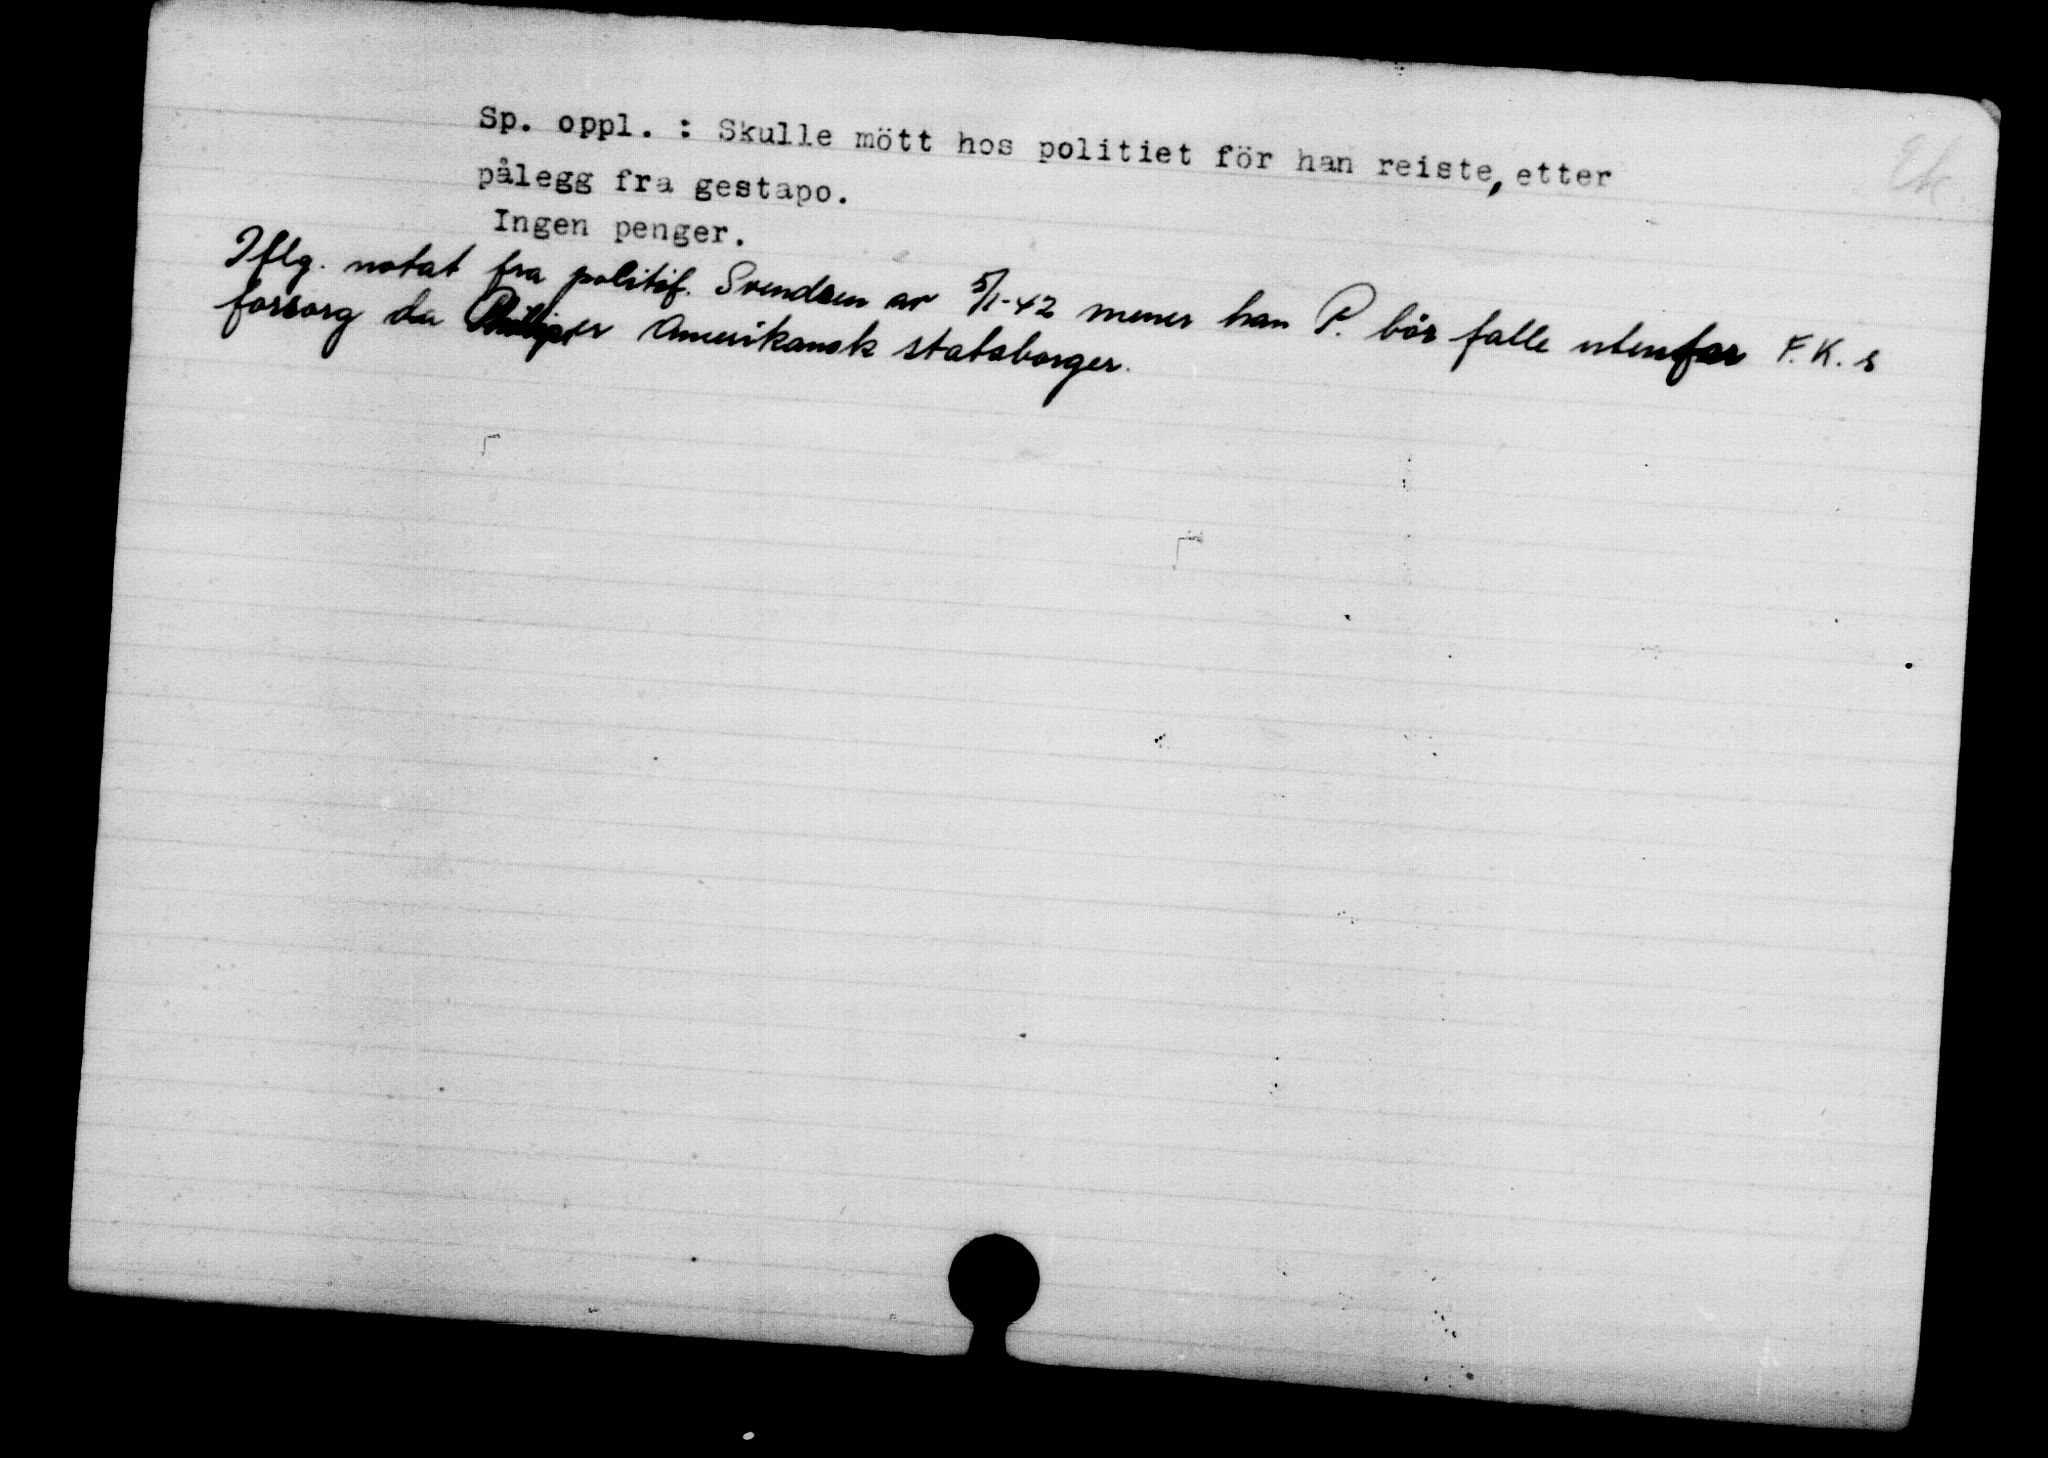 Ek
Sp. oppl. : Skulle mött hos politiet för han reiste, etter
pålegg fra gestapo.
Ingen penger.
Iflg. notat fra politif. Svendsen av 5/1-42 mener han P. bör falle utenfor F.K.s
forsorg da Phillip er Amerikansk statsborger.